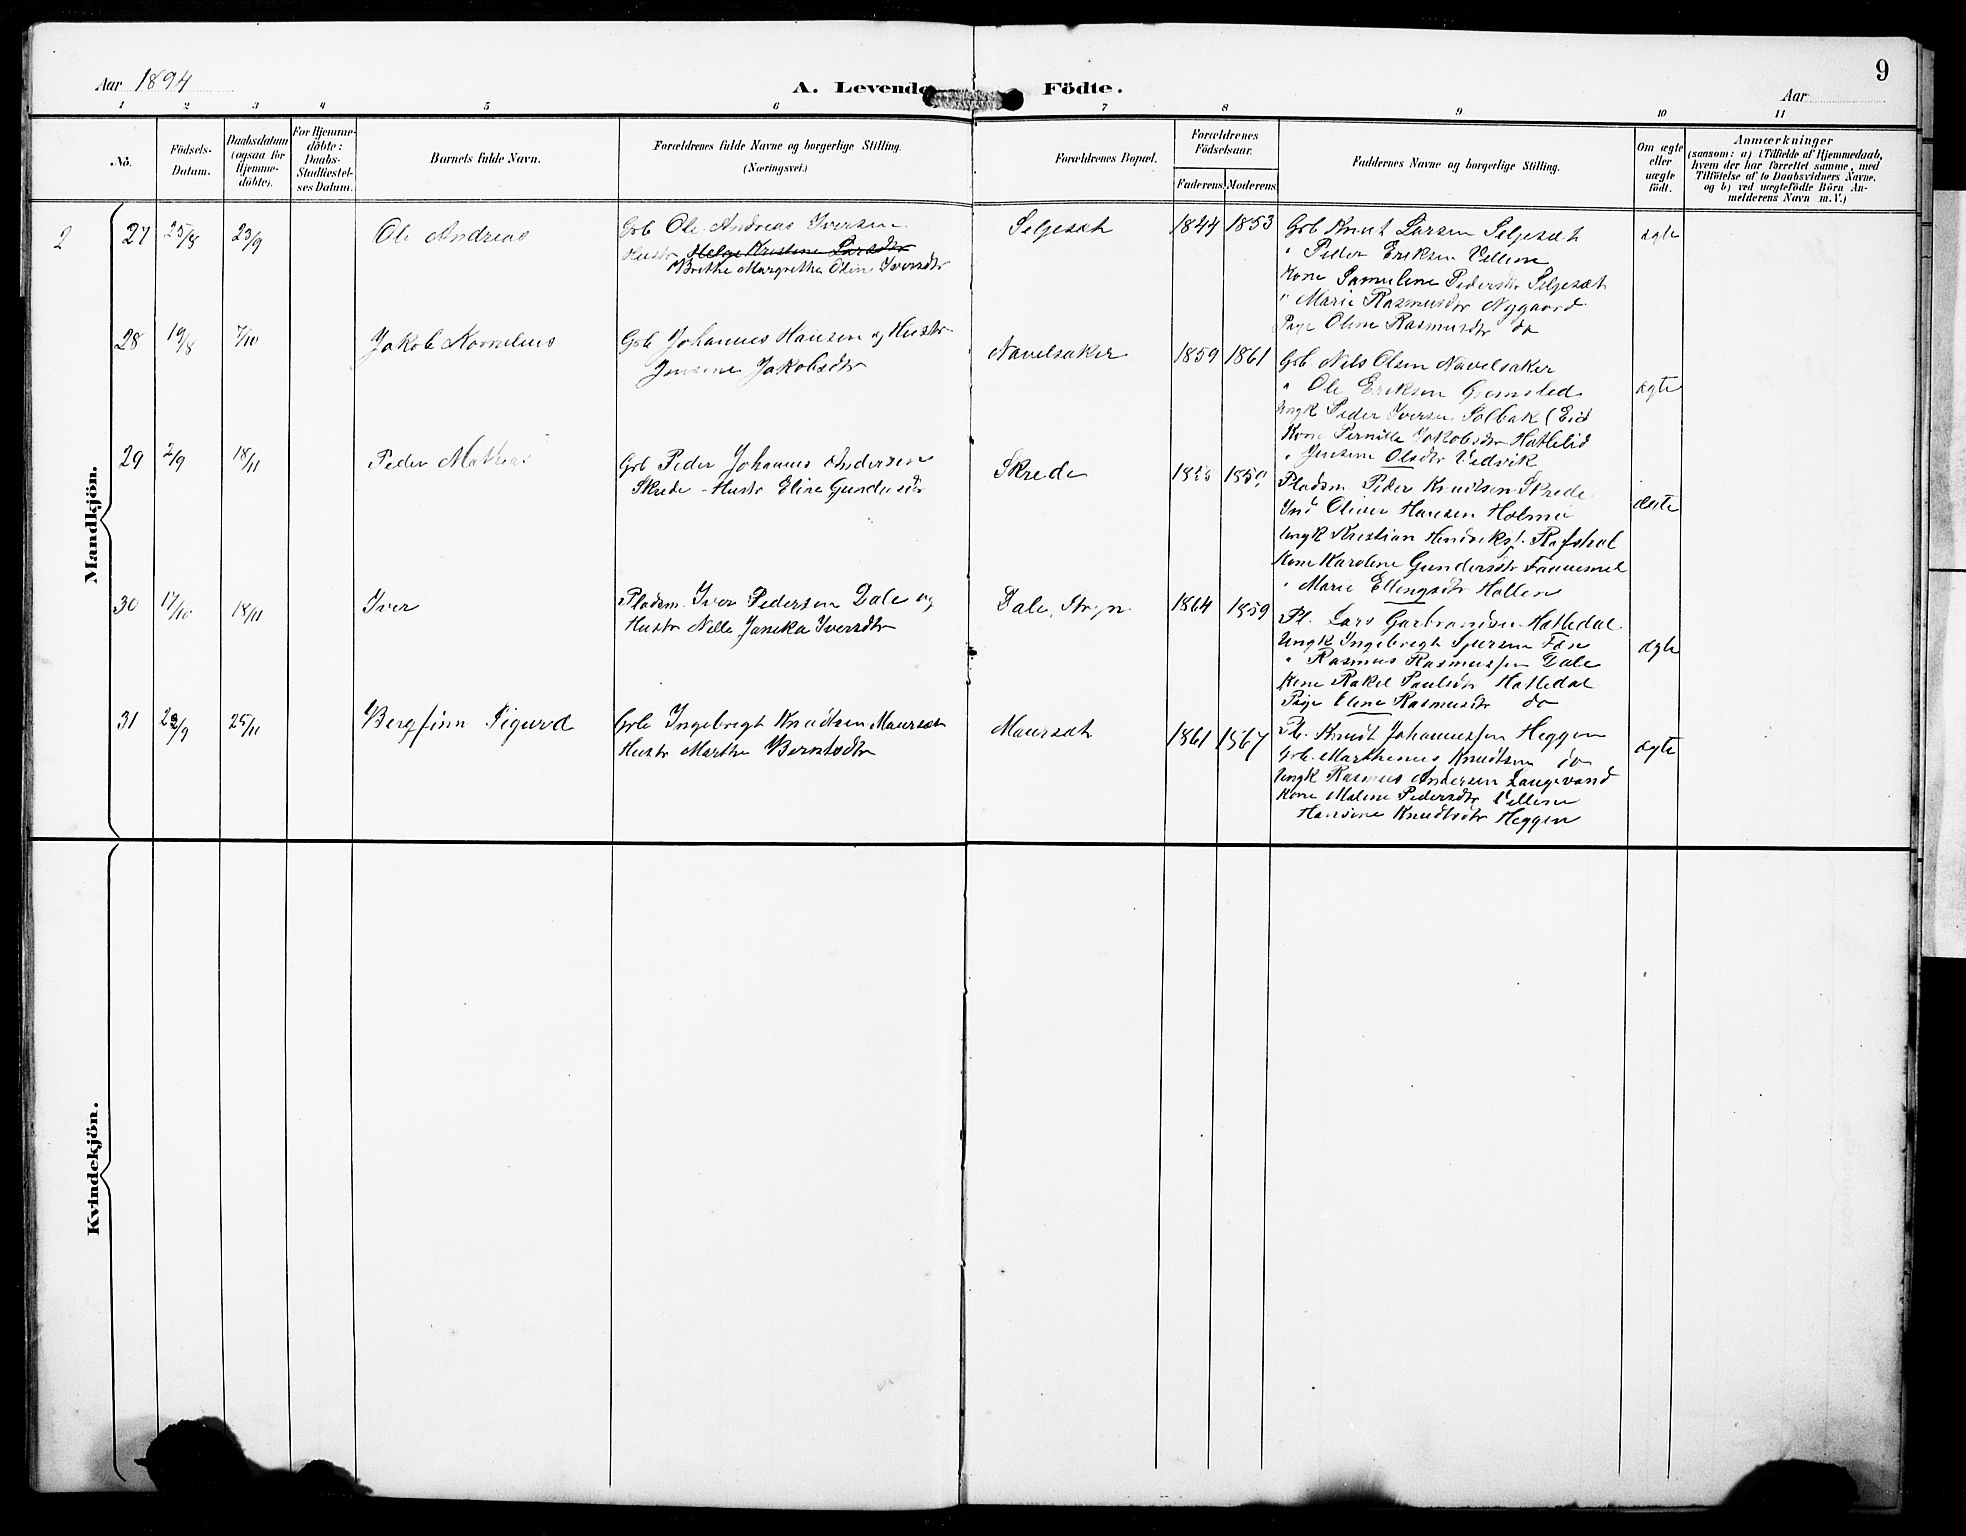 9
Aar 1894
A. Levende Födte.
Aar
1 2 3 4 5 6 7 8 9 10 11
No.
Födsels-
Datum.
Daabsdatum
(ogsaa for
Hjemme-
döbte).
For Hjemme-
döbte:
Daabs-
Stadfæstel-
ses Datum.
Barnets fulde Navn.
Forældrenes fulde Navne og borgerlige Stilling.
(Næringsvei.)
Forældrenes Bopæl.
Forældrenes
Födselsaar.
Faderens. Moderens.
Faddernes Navne og borgerlige Stilling.
Om ægte
eller
uægte
födt.
Anmærkninger
(saasom: a) i Tilfælde af Hjemmedaab,
hvem der har forrettet samme, med
Tilföielse af to Daabsvidners Navne,
og b) ved uægtefödte Börn An-
melderens Navn m. V.)
Mandkjön.
2
27 25/8 23/9 Ole Andreas
Grb Ole Andreas Iversen
Hustr Helge Kristine Larsdtr
Brithe Margrethe Oline Iversdtr
Seljesæt 1844 1853
Grb Knut Larsen Seljesæt
" Peder Eriksen Vellene
Kone Samueline Pedersdtr Seljesæt
" Marie Rasmusdtr Nygaard
Pige Oline Rasmusdtr do
ægte
28 19/8 7/10 Jakob Kornelius
Grb Johannes Hansen og Hustr
Jensine Jakobsdtr
Navelsaker 1859 1861
Grb Nils Olsen Navelsaker
" Ole Eriksen Grimsted
Ungk Peder Iversen Solbak (Eid
Kone Pernille Jakobsdtr Hatlelid
" Jensine Olsdtr Vedvik
ægte
29 2/9 18/11 Peder Mathias
Grb Peder Johannes Andersen
Skrede - Hustr Eline Gundersdtr
Skrede
Pladsm Peder Knudsen Skrede
Ind Oliver Hansen Holme
Ungk Kristian Hendriks. Rafshol
Kone Karoline Gundersdtr Fannemel
" Marie Ellingsdtr Hollen
ægte
30 17/10 18/11 Iver
Pladsm. Iver Pedersen Dale og
Hustr Nille Janika Iversdtr
Dale, Stryn 1864 1859
Pl. Lars Garbrandsen Hatledal
Ungk Ingebregt Sjursen Fæn
" Rasmus Rasmussen Dale
Kone Rakel Paulsdtr Hatledal
Pige Eline Rasmusdtr do
ægte
31 23/9 25/11 Bergfinn Sigurd
Grb Ingebregt Knudtsen Maursæt
Hustr Marthe Berntsdtr
Maursæt 1861 1867
Pl. Knudt Johannessen Heggen
Grb. Marthenus Knudtsen do
Ungk Rasmus Andersen Langevand
Kone Malene Pedersdtr Vellene
Hansine Knudtsdtr Heggen
ægte
Kvindekjön.